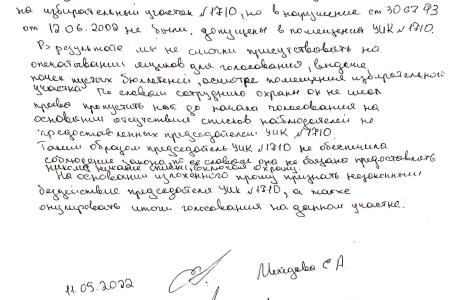 на избирательный участок №1710, но в нарушение ст 30 67 93
от 12.06.2002 не были допущены в помещения УИК №1710.
В результате мы не смогли присутствовать на
опечатывании ящиков для голосования, выдаче
пачек пустых бюллетеней, осмотре помещения избирательной
участка. По словам сотрудника охраны он не имел
права пропустить нас до начала голосования на
основании отсутствия списков наблюдателей не
предоставленных председателем УИК №1710.
Таким образом председатель УИК №1710 не обеспечила
соблюдение закона, по ее словам она не обязана предоставлять
никому никакие списки, включая охрану.
На основании изложенного прошу признать незаконным
бездействие председателя УИК №1710, а также
анулировать итоги голосования на данном участке.
11.05.2022 С А.